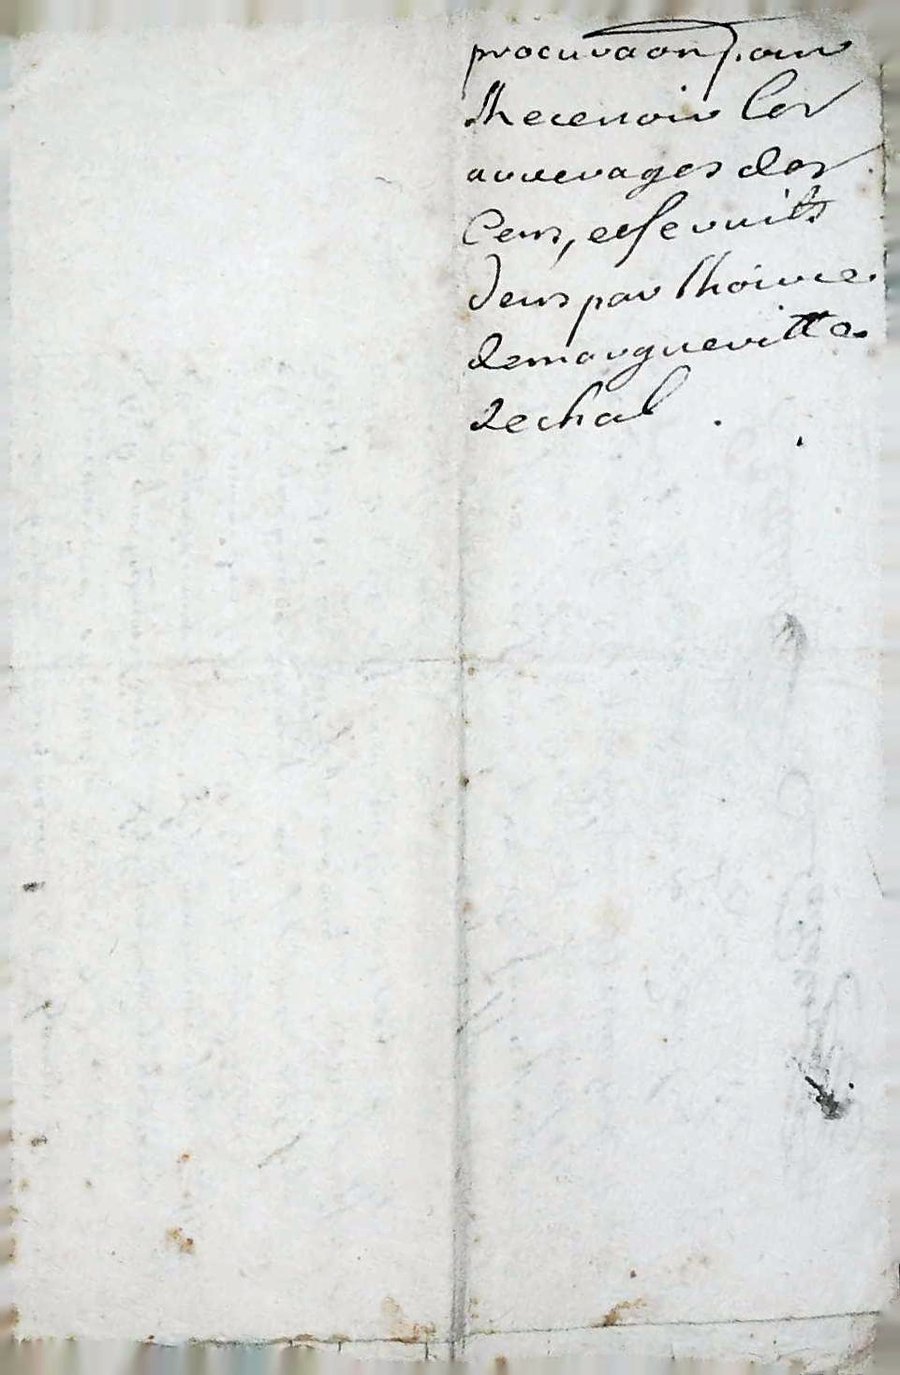 procuraon pour
Recenoir les
arrerages des
Cens, et servits
deus par lhoirie
de margueritte
dechal